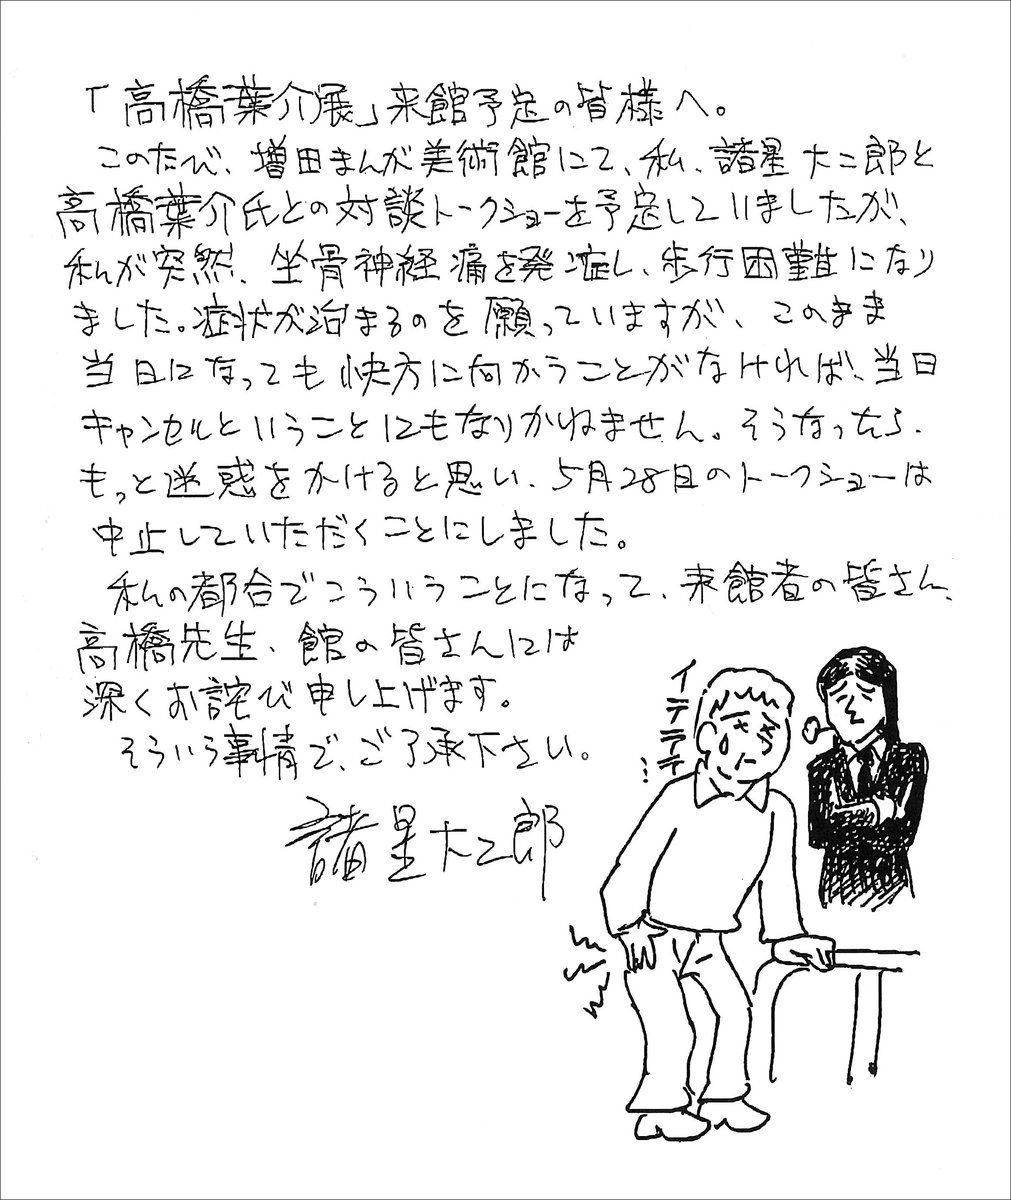 「高橋葉介展」来館予定の皆様へ。
このたび、増田まんが美術館にて、私、諸星大二郎と
高橋葉介氏との対談トークショーを予定していましたが、
私が突然、坐骨神経痛を発症し、歩行困難になり
ました。症状が治まるのを願っていますが、このまま
当日になっても快方に向かうことがなければ、当日
キャンセルということにもなりかねません。そうなったら、
もっと迷惑をかけると思い、5月28日のトークショーは
中止していただくことにしました。
私の都合でこういうことになって、来館者の皆さん、
高橋先生、館の皆さんには
深くお詫び申し上げます。
そういう事情で、ご了承下さい。
諸星大二郎
イテテテテ…